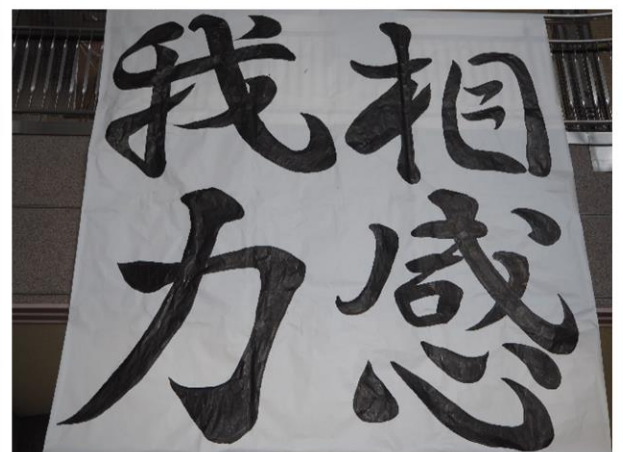 相感
我力